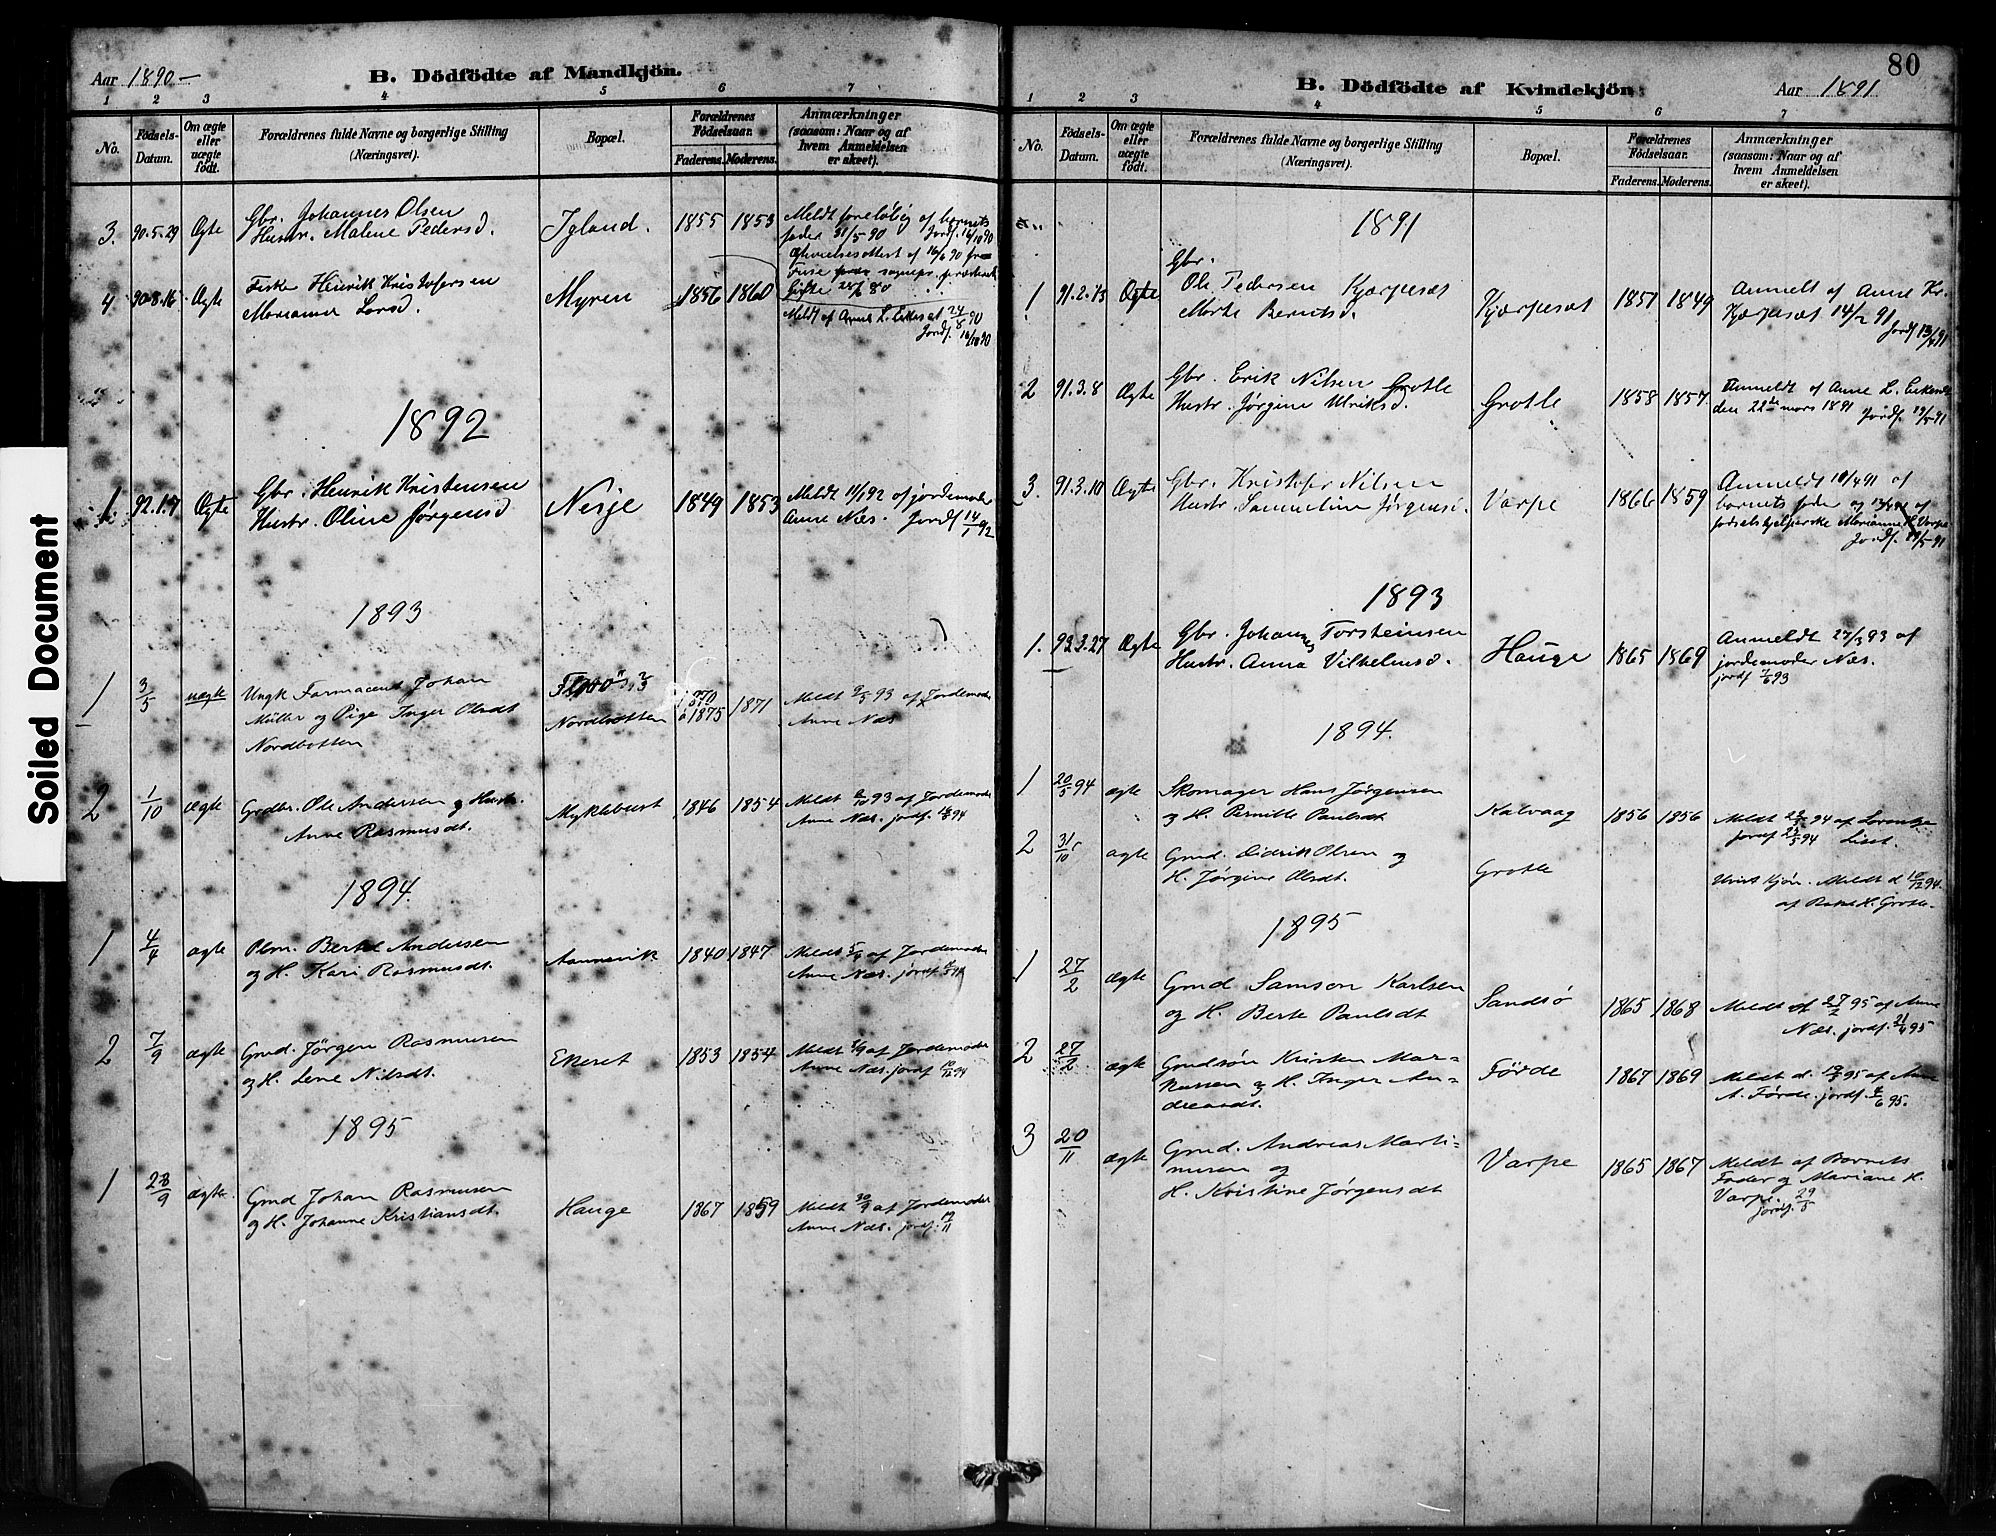 Soiled Document
Aar 1890 —
B. Dödfödte af Mandkjön.
1 2 3 4 5 6 7
No.
Födsels-Datum.
Om ægte eller uægte födt.
Forældrenes fulde Navne og borgerlige Stilling
(Næringsvei).
Bopæl.
Forældrenes Födselsaar.
Faderens. Moderens.
Anmærkninger
(saasom: Naar og af
hvem Anmeldelsen
er skeet).
3. 90.5.29 Ægte Gbr. Johannes Olsen Igland. 1855 1853 Meldt foreløbig af barnets
Hustr. Malene Pedersd. fader 31/5 90 Jordf. 16/10 90
4 90.8.16 Ægte Fisker Henrik Kristofersen Myren 1856 1860
Marianne Larsd.
Meldt af Anne L. Eikeset 24/8 90
Jordf. 16/10 90
1892
1. 92.1.7 Ægte Gbr. Henrik Kristensen Nesje 1849 1853 Meldt 11/1 92 af jordemoder
Hustr. Oline Jørgensd Anne Næs. Jordf 14/7 92
1893
1 3/5 uægte Ungk. Farmaceut Johan Florö 1870
Müller og Pige Inger Olsdt Nordbotten a 1875 1871 Meldt 9/5 93 af Jordemoder
Nordbotten Anne Næs
2 1/10 ægte Grdbr. Ole Andersen og Hustr. Myklebust 1846 1854 Meldt 2/10 93 af Jordemoder
Anne Rasmusdt. Anne Næs. jordf. 94
1894.
1 4/4 ægte Plm. Bertel Andersen 1840 1847 Meldt 5/4 af Jordemoder
og H. Kari Rasmusdt. Anne Næs. jordf.
2 7/9 ægte Gmd. Jörgen Rasmusen Ekeset 1853 1854 Meldt 8/9 af Jordemoder
og H. Lene Nilsdt. Anne Næs. jordf 94
1895
1 28/9 ægte Gmd Johan Rasmusen Hauge 1867 1859 Meldt 30/9 af Jordemoder
og H. Johanne Kristiansdt. Anne Næs. jordf. 19/11
80
B. Dödfödte af Kvindekjön
Aar 1891
1 2 3 4 5 6 7
No.
Födsels-Datum.
Om ægte eller uægte födt.
Forældrenes fulde Navne og borgerlige Stilling
(Næringsvei).
Bopæl.
Forældrenes Födselsaar.
Faderens. Moderens.
Anmærkninger
(saasom: Naar og af
hvem Anmeldelsen
er skeet).
1891
Gbr.
1 91.2.13 Ægte Ole Pedersen Kjærpesæt Kjærpesæt 1851 1849 Anmeldt af Anne Kr.
Marte Berntsd. Kjærpesæt 14/2 91
Jordf 13/5 91
2 91.3.8 Ægte Gbr. Erik Nilsen Grotle Grotle 1858 1857 Anmeldt af Anne L. Eikeset
Hustr. Jørgine Ulriksd. den 22de mars 1891 Jordf. 13/5 91
3. 91.3.10 Ægte Gbr. Kristofer Nilsen Varpe 1866 1859 Anmeldt 10/4 91 af
Hustr. Sammeline Jørgensd. barnets fader og 13/4 91 af
fødselshjelperske Marianne H. Varpe
Jordf. 13/5 91
1893
1. 93.3.27 Ægte Gbr. Johannes Torsteinsen Hauge 1865 1869 Anmeldt 27/3 93 af
Hustr. Anna Vilhelmsd. jordemoder Næs.
jordf 2/6 93
1894.
1 20/5 94 ægte Skomager Hans Jörgensen Kalvaag 1856 1856 Meldt 94 af Lorentze
og H. Pernille Paulsdt jordf 94 Liset.
2 31/10 ægte Gmd. Didrik Olsen og Grotle
H. Jörgine Olsdt. Uvist Kjön. Meldt d. 10/12 94.
af Rakel H. Grotle.
1895
1 27/2 ægte Gmd Samson Karlsen Sandsö 1865 1868 Meldt 27/2 95 af Anne
og H. Berte Paulsdt Næs. jordf. 21/4 95
2 27/2 ægte Gmdssön Kristen Mar=
kussen og H. Inger An= Förde 1867 1869 Meldt d. 95 af Anne
dreasdt. A. Förde. jordf. 4/6 95.
3 20/11 ægte Gmd. Andreas Marti=
nusen og Varpe 1865 1867 Meldt af Barnets
H. Kristine Jörgensdt Fader og Mariane H.
Varpe.
jordf. 29/5